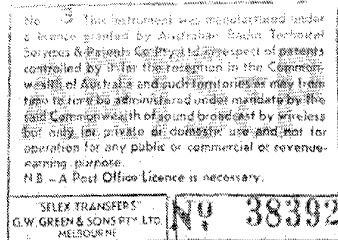 No 3 This instrument was manufactured under
a licence granted by Australian Radio Technical
Services & Patents Co Pty Ltd in respect of patents
controlled by it for the reception in the Common-
wealth of Australia and such territories as may from
time to time be administered under mandate by the
said Commonwealth of sound broadcast by wireless
but only for private or domestic use and not for
operation for any public or commercial or revenue-
earning purpose.
N.B. – A Post Office Licence is necessary.
"SELEX TRANSFERS"
G.W. GREEN & SONS PTY. LTD.
MELBOURNE
Nº 38392